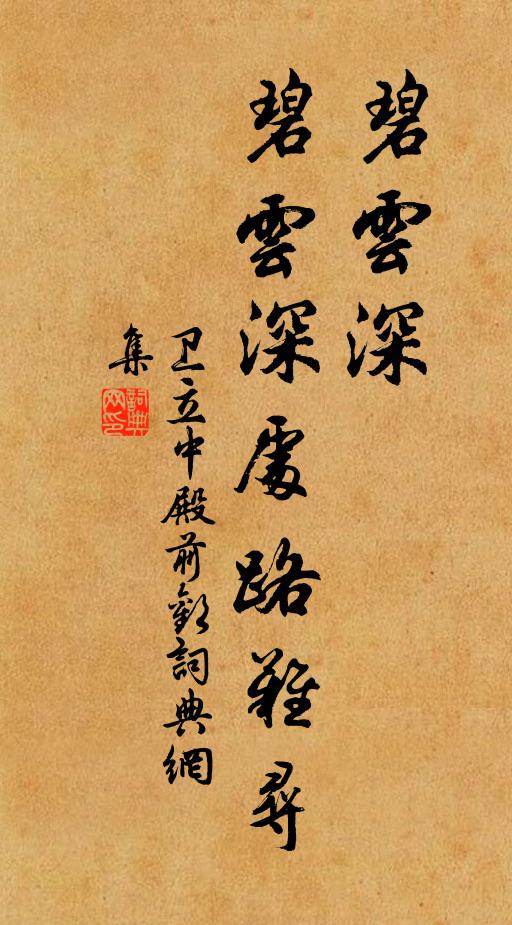 碧雲深
碧雲深處路難尋
卫立中殿前歡詞典網
集
詞典
网印